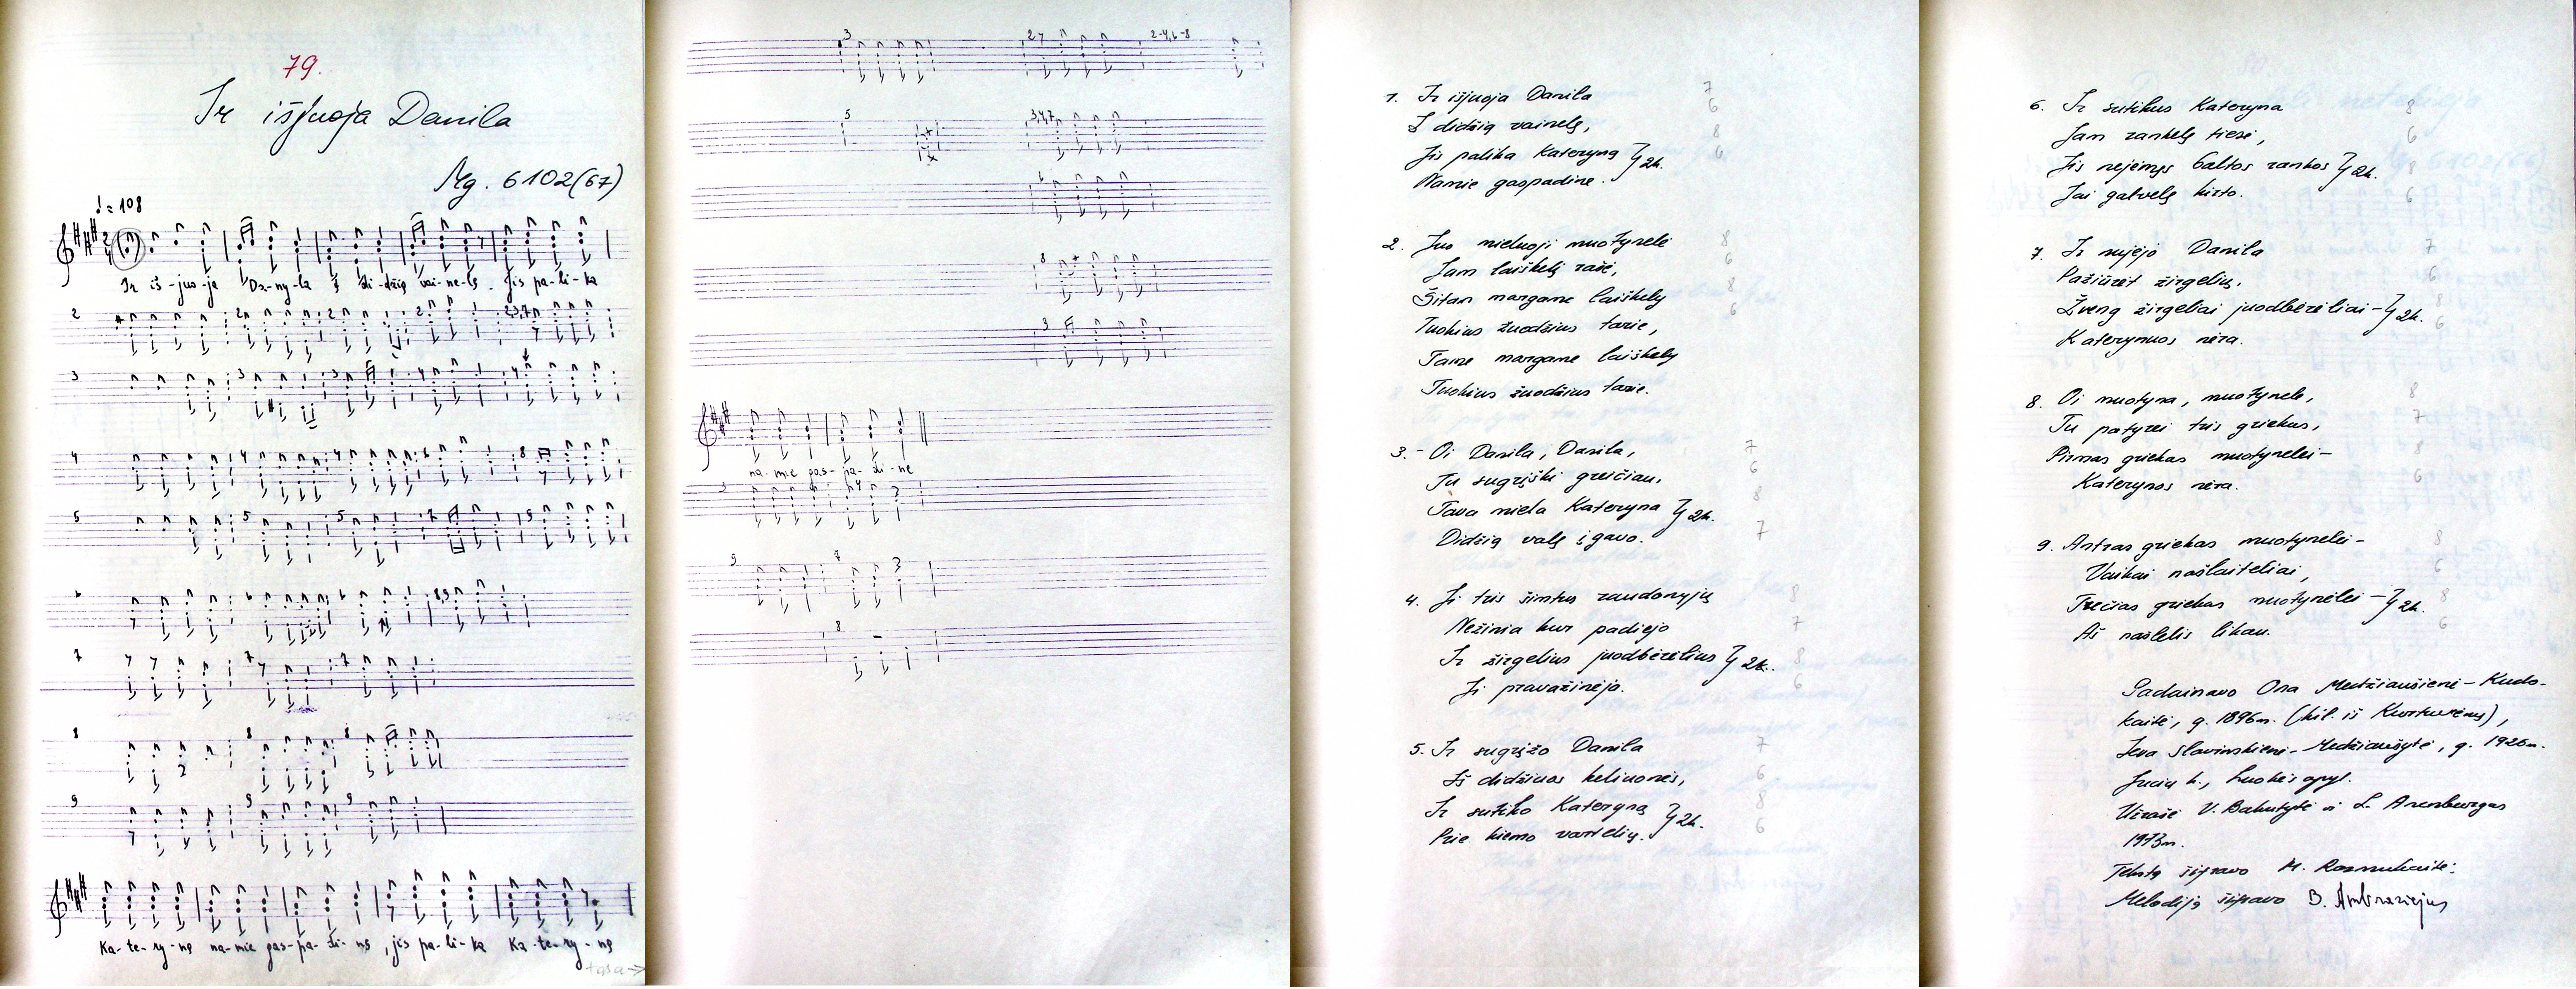 79.
Ir išjuoja Danila
Mg. 6102(67)
♩ = 108
Ir iš-juo-ja Da-ny-la į di-džią vai-ne-lę. Jis pa-li-ka
2 2 2 2 2,3,7
3 3 3 4 4
4 4 4 6 8
5 5 5 7 5
6 6 6 8,9
7 7 7
8 8 8
9 9 9
Ka-te-ry-ną na-mie gas-pa-di-nę, jis pa-li-ka Ka-te-ry-ną
tąsa →
3 2 7 2-4,6-8
5 3,4,7
6
8
3
na-mie gas-pa-di-nę
3 4
9 7
8
1. Ir išjuoja Danila 7
Į didžią vainelę, 6
Jis palika Kateryną } 2k. 8
Namie gaspadinę. 6
2. Juo mieluoji muotynelė 8
Jam laiškelį rašė, 6
Šitam margame laiškely 8
Tuokius žuodžius tarie, 6
Tame margame laiškely
Tuokius žuodžius tarie.
3. - Oi Danila, Danila, 7
Tu sugrįžki greičiau, 6
Tava miela Kateryna } 2k. 8
Didžią valę įgavo. 7
4. Ji tris šimtus raudonųjų 8
Nežinia kur padiejo 7
Ir žirgelius juodbėrėlius } 2k. 8
Ji pravažinėjo. 6
5. Ir sugrįžo Danila 7
Iš didžiuos keliuonės, 6
Ir sutiko Kateryną } 2k. 8
Prie kiemo vartelių. 6
6. Ir sutikus Kateryna 8
Jam rankelę tiesė, 6
Jis nejėmęs baltos rankos } 2k. 8
Jai galvelę kirto. 6
7. Ir nujėjo Danila 7
Pažiūrėt žirgelių, 6
Žveng žirgeliai juodbėrėliai - } 2k. 8
Katerynuos nėra. 6
8. Oi muotyna, muotynele, 8
Tu patyrei tris griekus, 7
Pirmas griekas muotynelei - 8
Katerynos nėra. 6
9. Antras griekas muotynelei - 8
Vaikai našlaitėliai, 6
Trečias griekas muotynėlei - } 2k. 8
Aš našlelis likau. 6
Padainavo Ona Medžiaušienė - Kudo-
kaitė, g. 1896m. (kil. iš Kurtuvėnų),
Ieva Slavinskienė - Medžiaušytė, g. 1926m.
Jucių k., Luokės apyl.
Užrašė V. Bakutytė ir L. Arenburgas
1973m.
Tekstą šifravo M. Razmukaitė:
Melodiją šifravo B. Ambraziejus